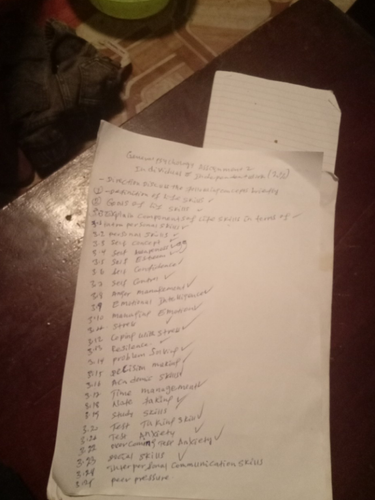 General psychology Assignment 2
Individual Independent work (30%)
- Direction: discuss the
① Definition of Life Skill ✓
② Goals of life skill ✓
③ Explain components of life skills in terms of ✓
3.1 Intra personal skills ✓
3.2 personal skills ✓
3.3 Self concept ✓
3.4 Self awareness
3.5 Self Esteem ✓
3.6 Self Confidence ✓
3.7 Self Control ✓
3.8 Anger management ✓
3.9 Emotional Intelligence ✓
3.10 Managing Emotion ✓
3.11 Stress ✓
3.12 Coping with stress ✓
3.13 Resilience ✓
3.14 problem solving ✓
3.15 Decision making ✓
3.16 Academic skills ✓
3.17 Time management ✓
3.18 Note taking ✓
3.19 Study skills ✓
3.20 Test Taking skill ✓
3.21 Test Anxiety ✓
3.22 overcoming test Anxiety ✓
3.23 social skills ✓
3.24 Interpersonal communication skills
3.25 peer pressure